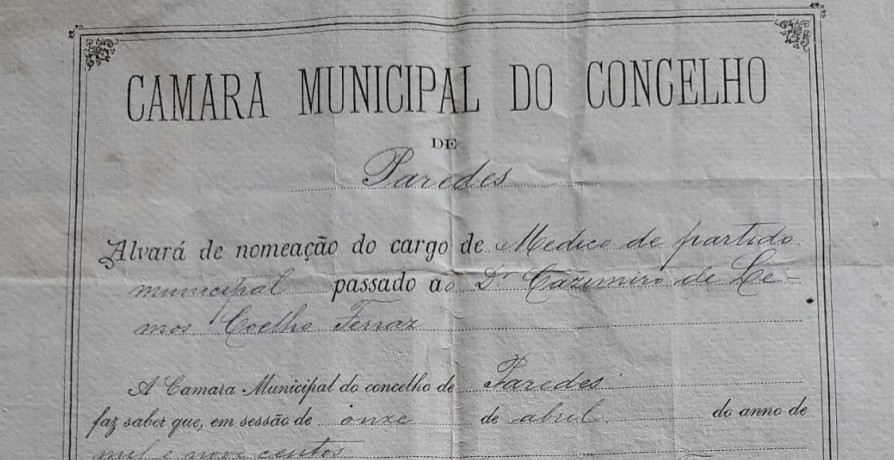 CAMARA MUNICIPAL DO CONCELHO
DE
Paredes
Alvará de nomeação do cargo de Medico de partido
municipal passado ao Dr Cazimiro de Le-
mos Coelho Ferraz
A Camara Municipal do concelho de Paredes
faz saber que, em sessão de onze de abril do anno de
mil e nove centos